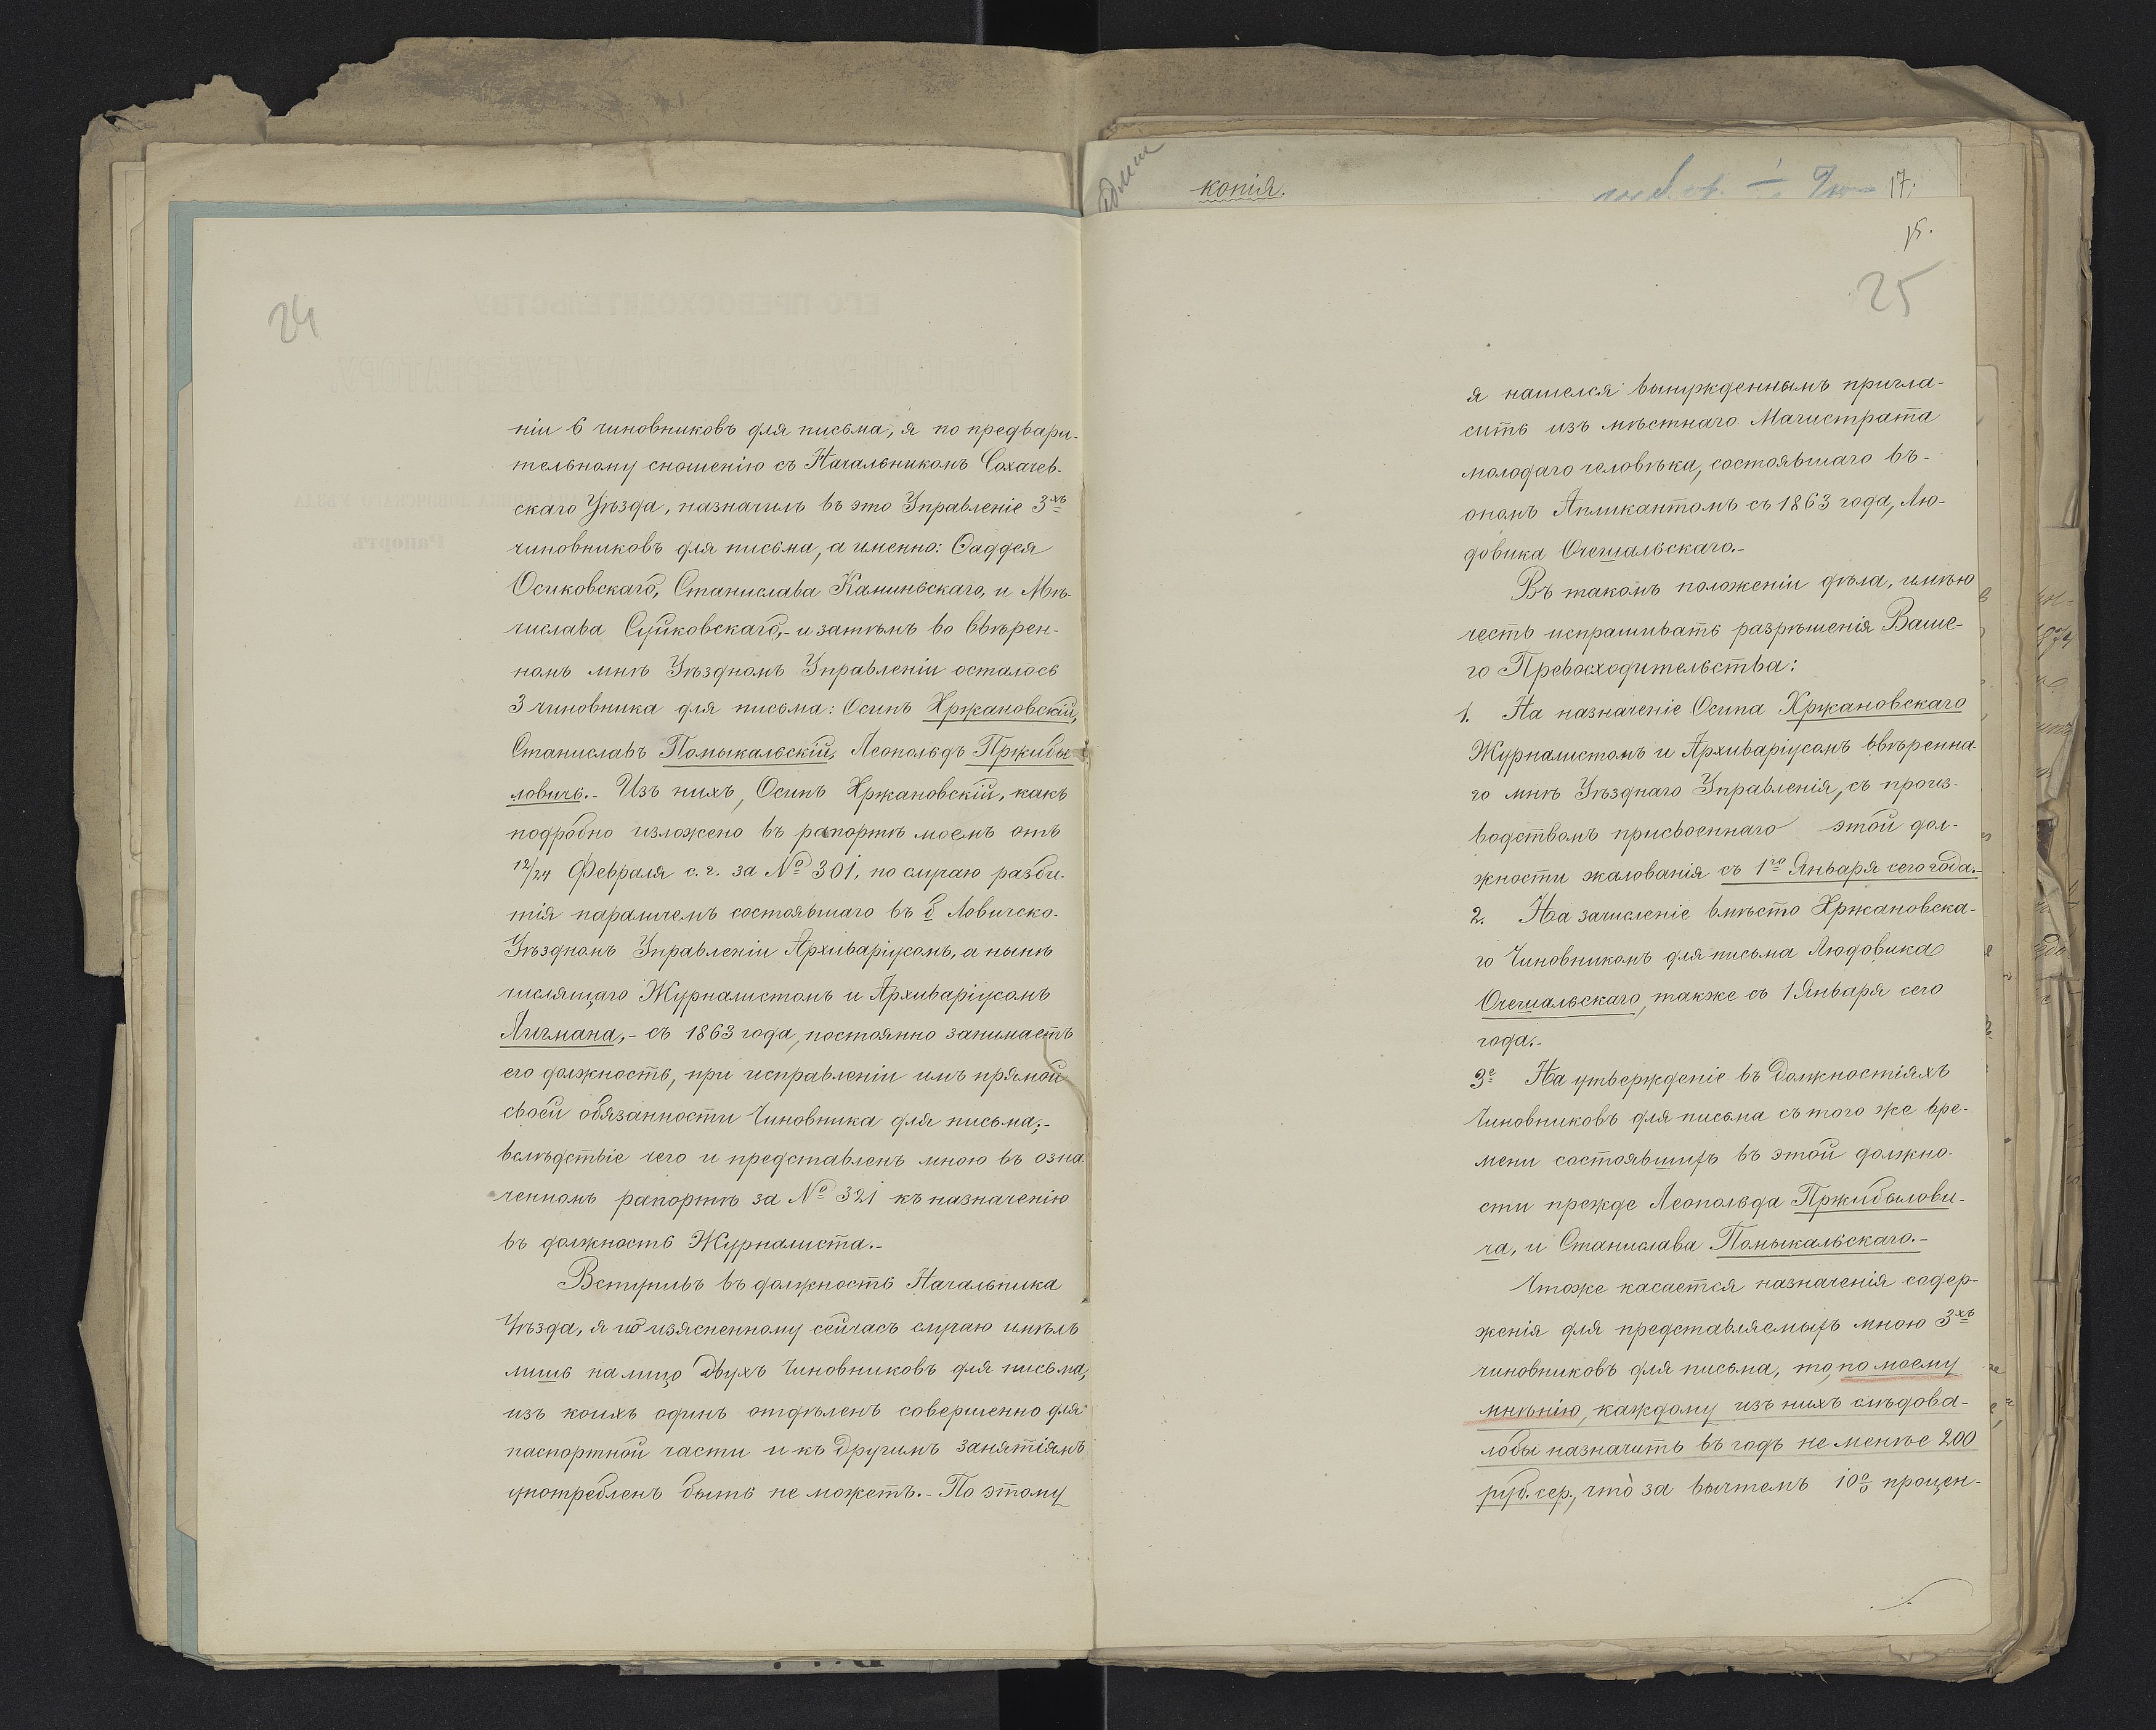 24
нiи 6 чиновниковъ для письма, я по предвари-
тельному сношенiю съ Начальникомъ Сохачев-
скаго Уѣзда, назначилъ въ это Управленiе 3хъ
чиновниковъ для письма, а именно: Фаддея
Осиковскаго, Станислава Каминьскаго, и Мѣ-
числава Суйковскаго,- и затѣмъ во ввѣрен-
номъ мнѣ Уѣздномъ Управленiи осталось
3 чиновника для письма: Осипъ Хржановскiй,
Станиславъ Помыкальскiй, Леопольдъ Пржибы-
ловичъ.- Изъ нихъ, Осипъ Хржановскiй, какъ
подробно изложено въ рапортѣ моемъ отъ
12/24 Февраля с. г. за № 301, по случаю разби-
тiя параличемъ состоявшаго въ б Ловичско-
Уѣздномъ Управленiи Архиварiусомъ, а нынѣ
числящаго Журналистомъ и Архиварiусомъ
Личмана,- съ 1863 года, постоянно занимаетъ
его должность, при исправленiи имъ прямой
своей обязанности Чиновника для письма;-
вслѣдствiе чего и представленъ мною въ озна-
ченномъ рапортѣ за № 321 къ назначенiю
въ должность Журналиста.-
Вступивъ въ должность Начальника
Уѣзда, я по изясненному сейчасъ случаю имѣлъ
лишь на лицо двухъ Чиновниковъ для письма,
изъ коихъ одинъ отдѣленъ совершенно для
паспортной части и къ другимъ занятiямъ
употребленъ быть не можетъ.- По этому
копiя.
17.
15.
25
я нашелся вынужденнымъ пригла-
сить изъ мѣстнаго Магистрата
молодаго человѣка, состоявшаго въ-
ономъ Апликантомъ съ 1863 года, Лю-
довика Очешальскаго.-
Въ такомъ положенiи дѣла, имѣю
честь испрашивать разрѣшенiя Ваше-
го Превосходительства:
1. На назначенiе Осипа Хржановскаго
Журналистомъ и Архиварiусомъ ввѣренна-
го мнѣ Уѣзднаго Управленiя, съ произ-
водствомъ присвоеннаго этой дол-
жности жалованiя съ 1го Января сего года.-
2. На зачисленiе вмѣсто Хржановска-
го Чиновникомъ для письма Людовика
Очешальскаго, также съ 1 Января сего
года.-
3е На утвержденiе въ должностiяхъ
Чиновниковъ для письма съ того же вре-
мени состоявшихъ въ этой должно-
сти прежде Леопольда Пржибылови-
ча, и Станислава Помыкальскаго.-
Чтоже касается назначенiя содер-
женiя для представляемыхъ мною 3хъ
чиновниковъ для письма, то, по моему
мнѣнiю, каждому изъ нихъ слѣдова-
лобы назначить въ годъ не менѣе 200
руб. сер., что̀ за вычетомъ 10% процен-